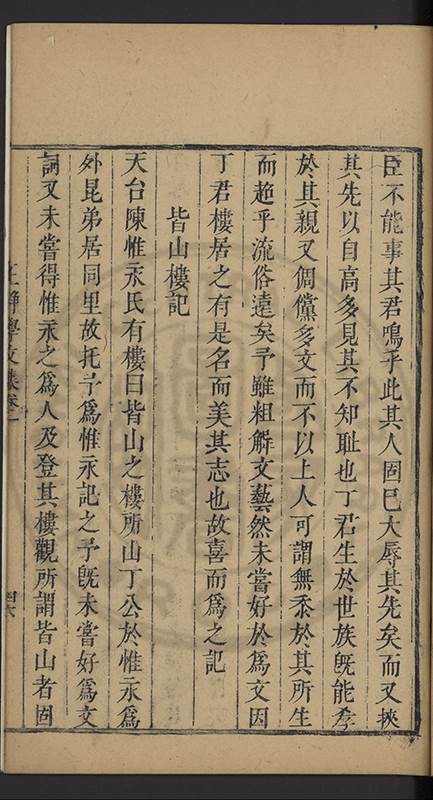 臣不能事其君嗚乎此其人固已大辱其先矣而又挾
其先以自高多見其不知耻也丁君生於世族旣能孝
於其親又倜儻多文而不以上人可謂無忝於其所生
而超乎流俗遠矣予雖粗觧文藝然未嘗好於爲文因
丁君樓居之有是名而美其志也故喜而爲之記
皆山樓記
天台陳惟永氏有樓曰皆山之樓所山丁公於惟永爲
外昆弟居同里故托予爲惟永記之予旣未嘗好爲文
詞又未嘗得惟永之爲人及登其樓觀所謂皆山者固
王靜學文集卷二
四六